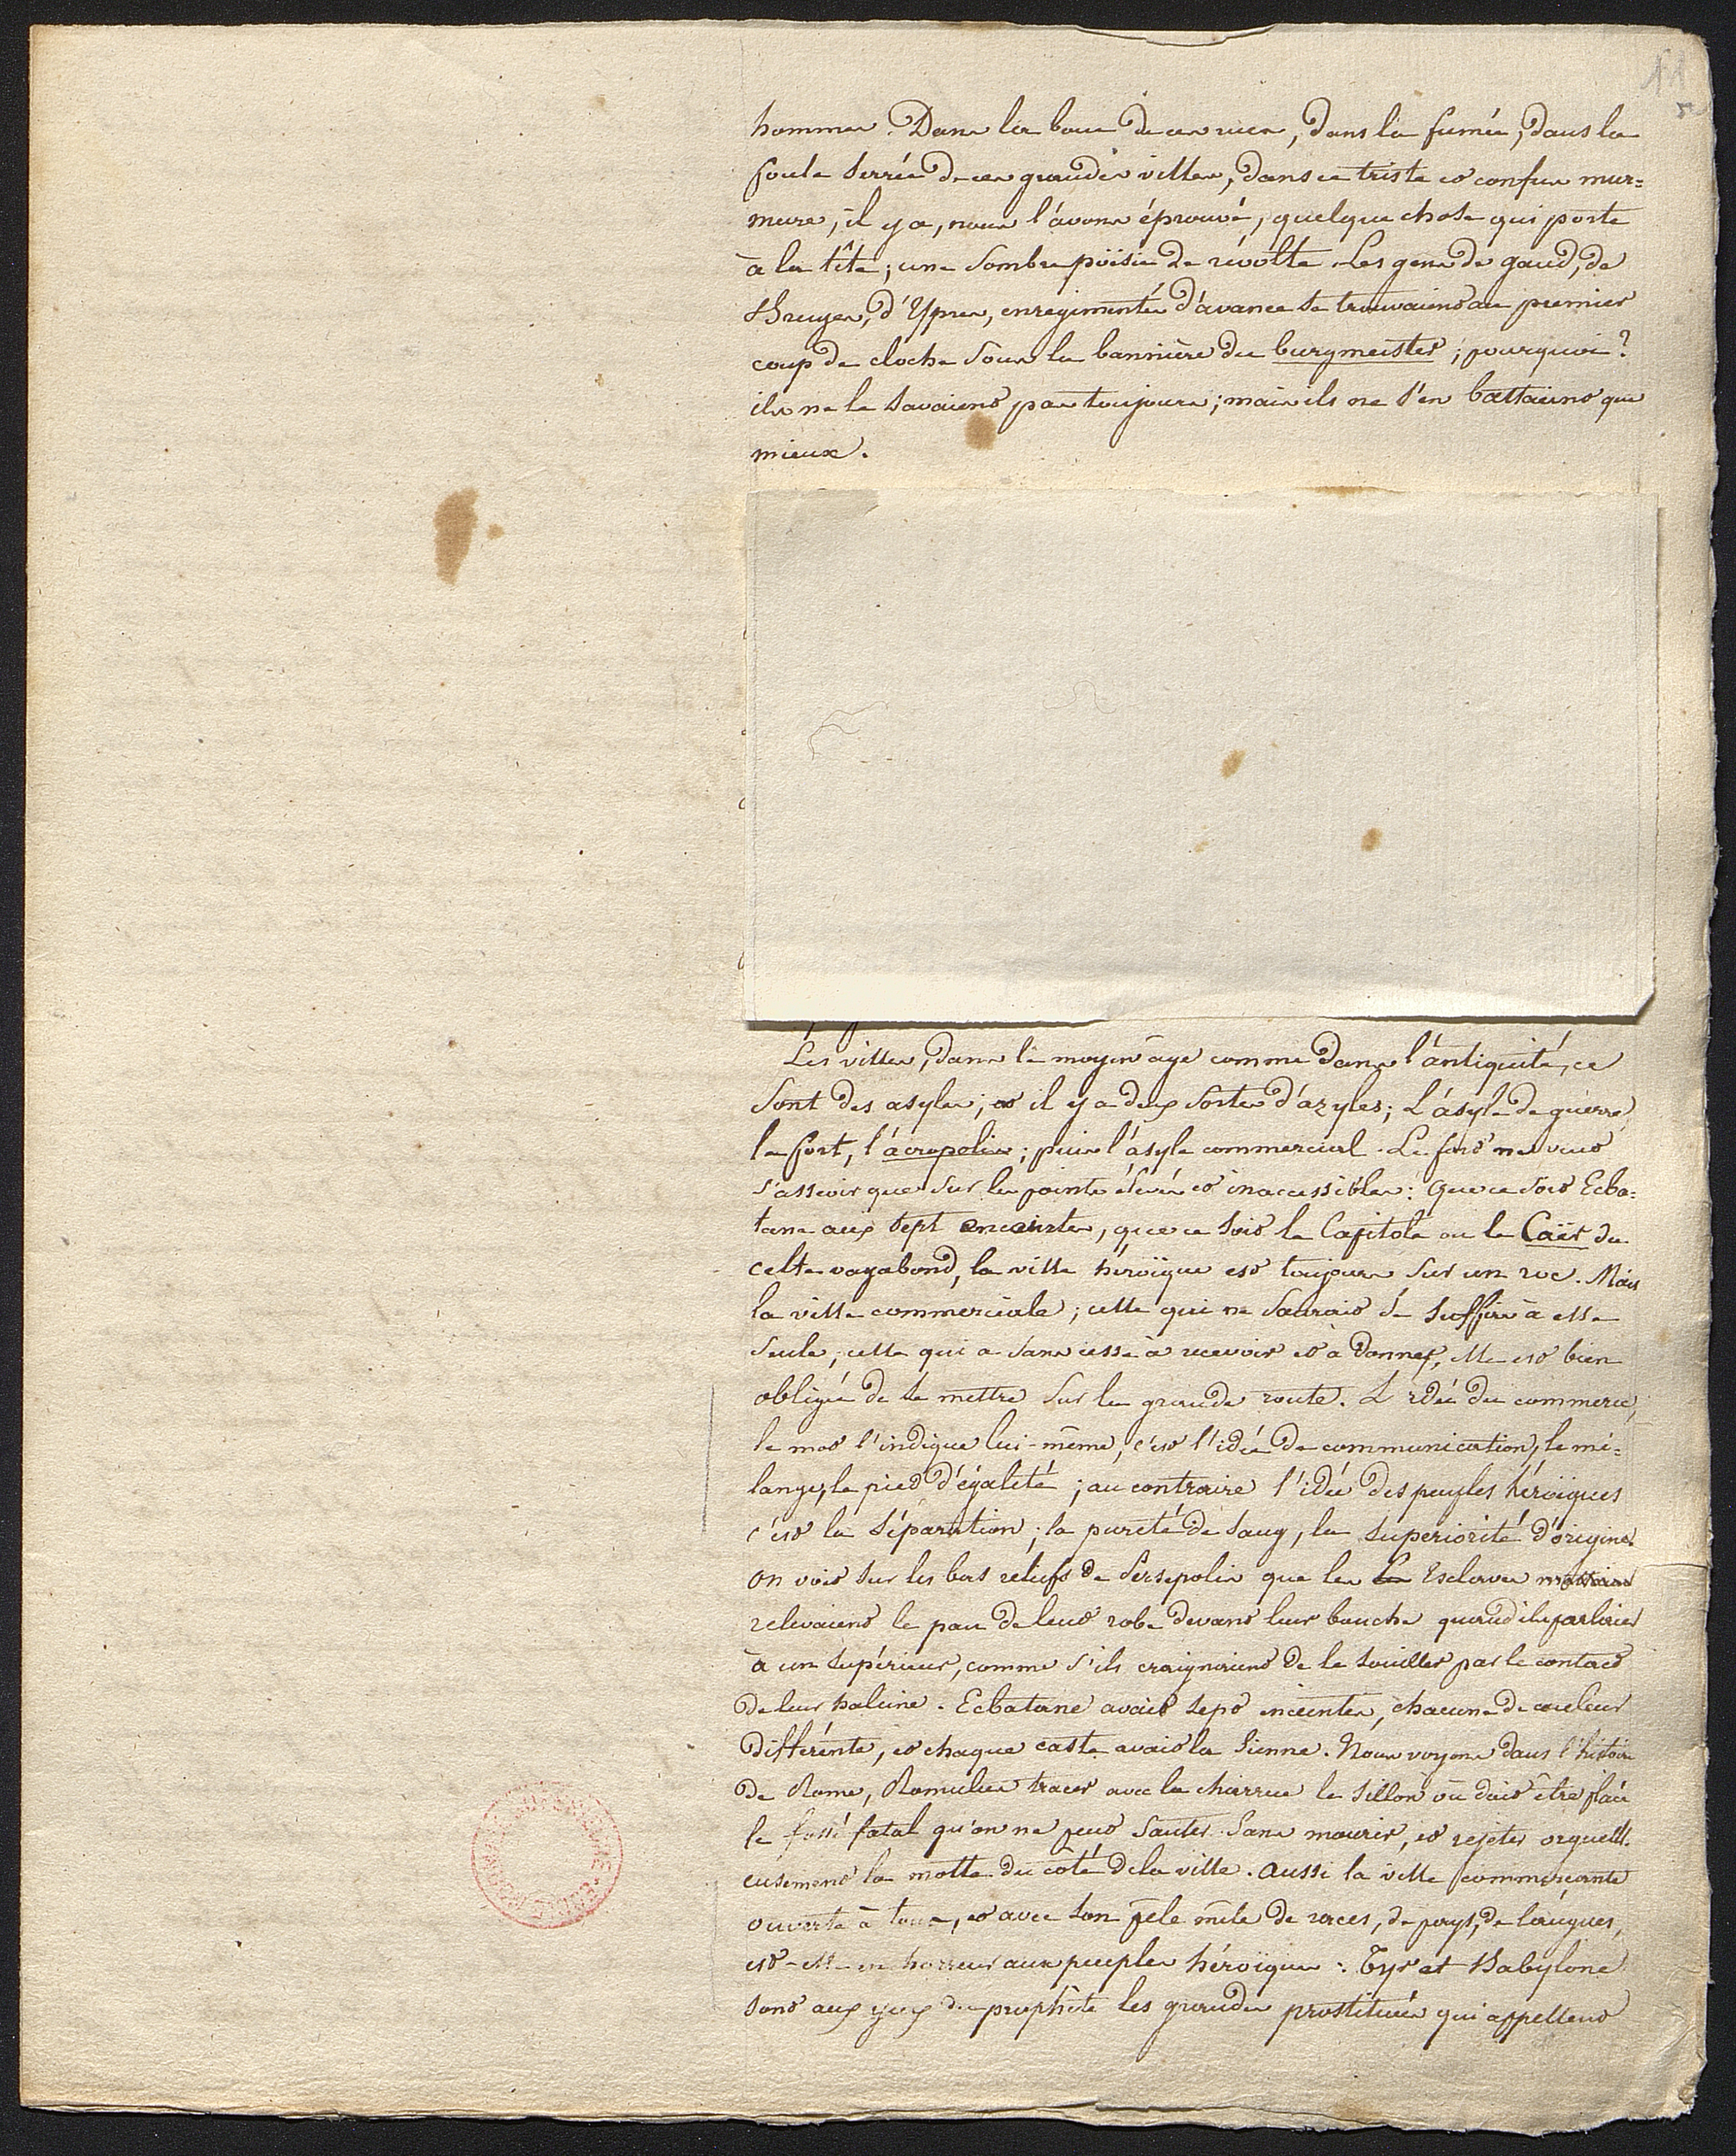 11
hommes. Dans la boue de ces rues, dans la fumée, dans la
foule serrée de ces grandes villes, dans ce triste et confus mur=
mure, il y a, nous l'avons éprouvé, quelque chose qui porte
à la tête; une sombre poësie de révolte. Les gens de gand, de
Bruges, d'Ypres, enregimentés d'avance se trouvaient au premier
coup de cloche sous la bannière du burgmeister; pourquoi?
ils ne le savaient pas toujours; mais ils ne s'en battaient que
mieux.
Les villes, dans le moyen âge comme dans l'antiquité, ce
sont des asyles; et il y a deux sortes d'azyles; L'asyle de guerre
le fort, l'acropolis; puis l'asyle commercial. Le fort ne veut
s'asseoir que sur les pointes élevées et inaccessibles: que ce soit Ecba=
tane aux sept enceintes, que ce soit le Capitole ou le Caër du
celte vagabond, la ville héroïque est toujours sur un roc. Mais
la ville commerciale; celle qui ne saurait se suffire à elle
seule; celle qui a sans cesse à recevoir et à donner, elle est bien
obligée de se mettre sur la grande route. L'idée du commerce,
le mot l'indique lui-même, c'est l'idée de communication, le mé=
lange, le pied d'égalité; au contraire l'idée des peuples héroïques
c'est la séparation; la pureté de sang, la superiorité d'origine.
On voit sur les bas reliefs de Persepolis que les Esclaves
relevaient le pan de leur robe devant leur bouche quand ils parlaient
à un supérieur, comme s'ils craignaient de le souiller par le contact
de leur haleine. Ecbatane avait sept enceintes, chacune de couleur
différente, et chaque caste avait la sienne. Nous voyons dans l'histoire
de Rome, Romulus tracer avec la charrue le sillon où doit être placé
le fossé fatal qu'on ne peut sauter sans mourir, et rejeter orgueill.
eusement la motte du côté de la ville. Aussi la ville commerçante
ouverte à tous, et avec son pêle mêle de races, de pays, de langues,
est-elle en horreur aux peuples héroïques: Tyr et Babylone
sont aux yeux du prophète les grandes prostituées qui appellent